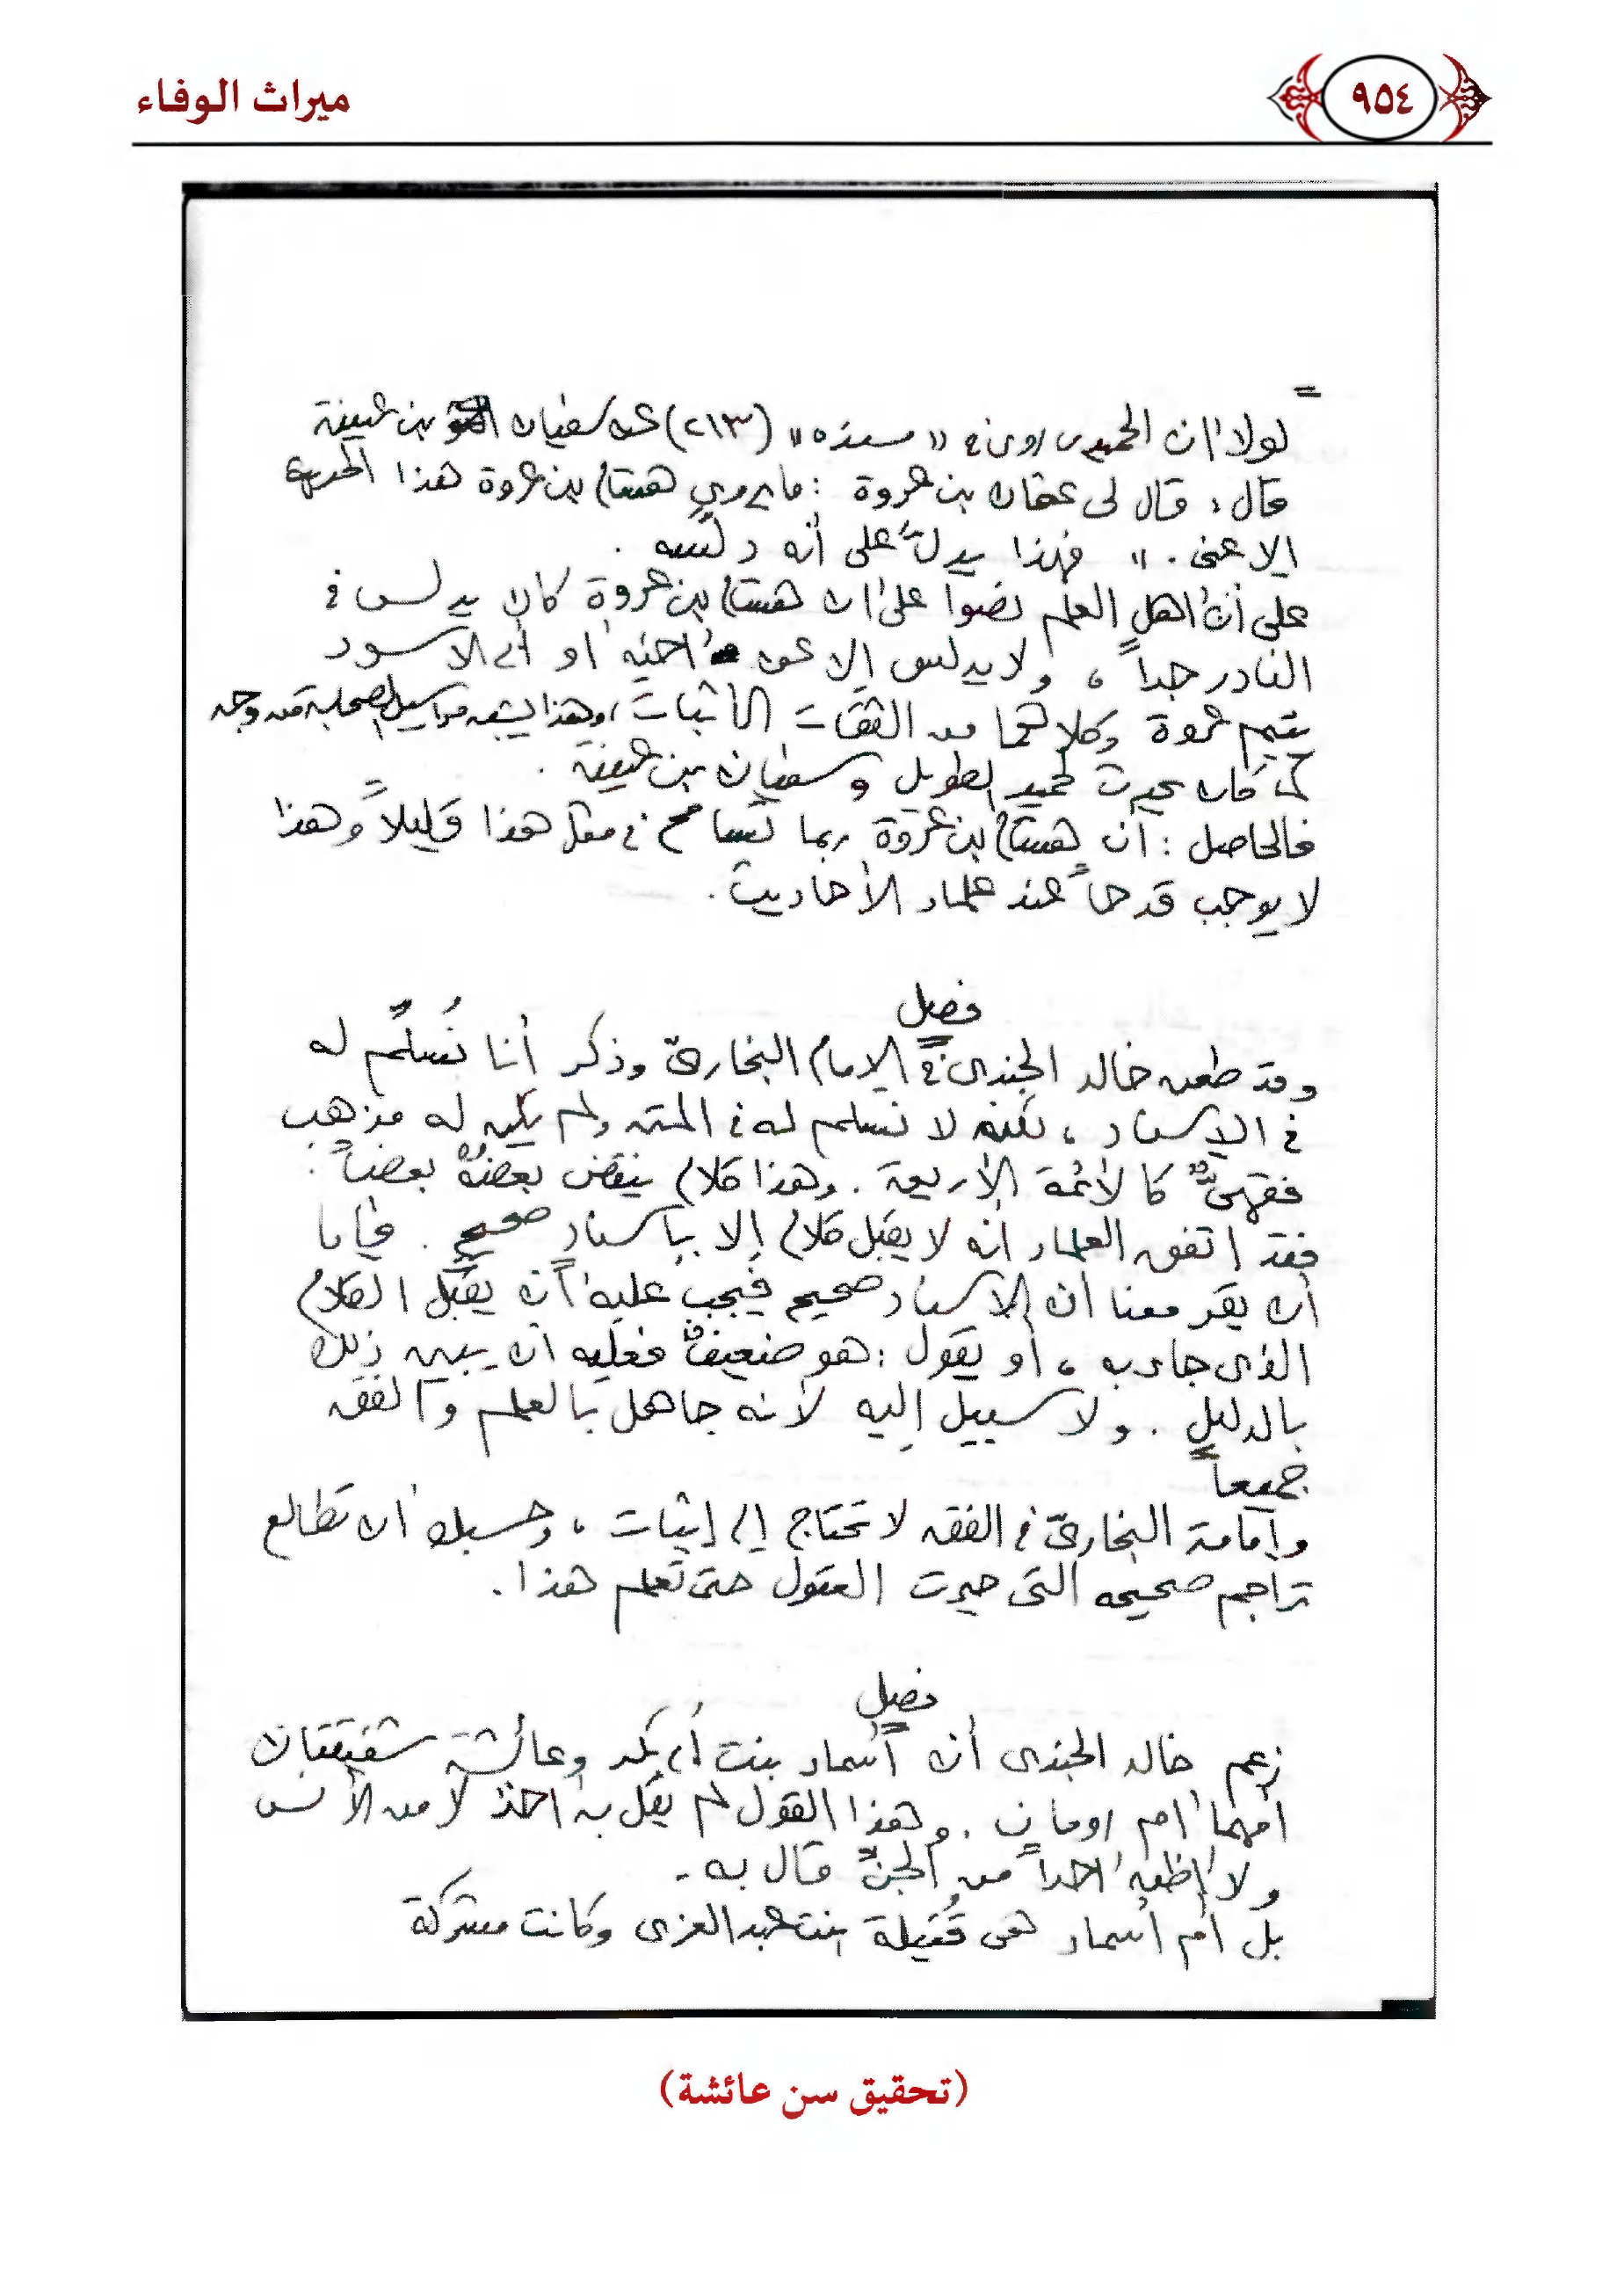 ٩٥٤
ميراث الوفاء
=
لولا أن الحميدى روى فى "مسنده" (٢١٣) عن سفيان بن عيينة
قال: قال لى عثمان بن عروة: ما يروي هشام بن عروة هذا الحديث
إلا عنى." فهذا يدلُّ على أنه دلَّسه.
على أن أهل العلم نصوا على أن هشام بن عروة كان يدلس فى
النادر جداً، ولا يدلس إلا عن أخيه أو أبى الأسود
يتيم عروة وكلاهما من الثقات الأثبات، وهذا يشبه مراسيل الصحابة من وجه
كما كان يحدث لحميد الطويل وسفيان بن عيينة.
فالحاصل: أن هشام بن عروة ربما تسامح فى مثل هذا قليلاً وهذا
لا يوجب قدحاً عند علماء الأحاديث.
فصل
وقد طعن خالد الجندى فى الإمام البخارىّ وذكر أننا نُسلِّم له
فى الإسناد، لكنه لا نسلم له فى المتن ولم يكن له مذهب
فقهىٌّ كالأئمة الأربعة. وهذا كلام ينقض بعضهُ بعضاً.
فقد اتفق العلماء أنه لا يقبل كلام إلا بإسنادٍ صحيح. فإما
أن يقر معنا أن الإسناد صحيح فيجب عليه أن يقبل الكلام
الذى جاء به، أو يقول: هو ضعيفٌ فعليه أن يبين ذلك
بالدليل. ولا سبيل إليه لأنه جاهل بالعلم والفقه
جميعاً
وإمامة البخارىّ فى الفقه لا تحتاج إلى إثبات، وحسبك أن تطالع
تراجم صحيحه التى حيرت العقول حتى تعلم هذا.
فصل
زعم خالد الجندى أن أسماء بنت أبى بكر وعائشة شقيقتان
أمهما أم رومان. وهذا القول لم يقل به أحدٌ لا من الأنس
ولا أظن أحداً من الجنّ قال به.
بل أم أسماء هى قُتيلة بنت عبد العزى وكانت مشركة
(تحقيق سن عائشة)